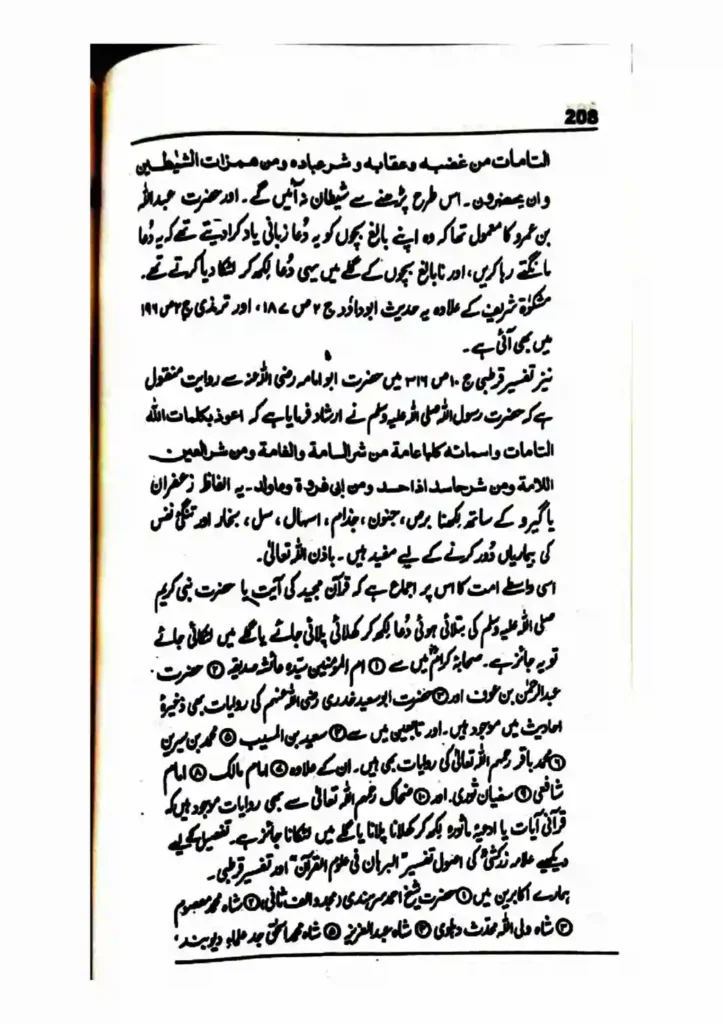 208
التامات من غضبه وعقابه و شر عباده ومن همزات الشیطین
وان یحضرون۔ اس طرح پڑھنے سے شیطان نہ آئیں گے۔ اور حضرت عبداللہ
بن عمرو کا معمول تھا کہ وہ اپنے بالغ بچوں کو یہ دُعا زبانی یاد کرا دیتے تھے کہ یہ دُعا
مانگتے رہا کریں، اور نابالغ بچوں کے گلے میں یہی دُعا لکھ کر لٹکا دیا کرتے تھے۔
مشکوٰۃ شریف کے علاوہ یہ حدیث ابوداؤد ج ۲ ص ۱۸۷، اور ترمذی ج ۲ ص ۱۹۶
میں بھی آئی ہے۔
نیز تفسیر قرطبی ج ۱۰ ص ۳۱۶ میں حضرت ابو امامہ رضی اللہ عنہ سے روایت منقول
ہے کہ حضرت رسول اللہ صلی اللہ علیہ وسلم نے ارشاد فرمایا ہے کہ اعوذ بکلمات اللہ
التامات واسمائہ کلہا عامة من شر السامة والغامة ومن شر العین
اللامة ومن شر حاسد اذا حسد ومن ابی فروة وماولد۔ یہ الفاظ زعفران
یا گیرو کے ساتھ لکھنا برص، جنون، جذام، اسہال، سل، بخار اور تنگئ نفس
کی بیماریاں دُور کرنے کے لیے مفید ہیں۔ باذن اللہ تعالیٰ۔
اسی واسطے امت کا اس پر اجماع ہے کہ قرآن مجید کی آیت یا حضرت نبی کریم
صلی اللہ علیہ وسلم کی بتلائی ہوئی دُعا لکھ کر کھلائی پلائی جائے یا گلے میں لٹکائی جائے
تو یہ جائز ہے۔ صحابہ کرامؓ میں سے ① ام المؤمنین سیدہ عائشہ صدیقہ ② حضرت
عبدالرحمٰن بن عوف اور ③ حضرت ابوسعید خدری رضی اللہ عنہم کی روایات بھی ذخیرۂ
احادیث میں موجود ہیں۔ اور تابعین میں سے ④ سعید بن المسیب ⑤ محمد بن سیرین
⑥ محمد باقر رحمہم اللہ تعالیٰ کی روایات بھی ہیں۔ ان کے علاوہ ⑦ امام مالک ⑧ امام
شافعی ⑨ سفیان ثوری۔ اور ⑩ ضحاک رحمہم اللہ تعالیٰ سے بھی روایات موجود ہیں کہ
قرآنی آیات یا ادعیہ ماثورہ لکھ کر کھلانا پلانا یا گلے میں لٹکانا جائز ہے۔ تفصیل کے لیے
دیکھیے علامہ زرکشیؒ کی اصول تفسیر "البرہان فی علوم القرآن" اور تفسیر قرطبی۔
ہمارے اکابرین میں ① حضرت شیخ احمد سرہندی (مجدد الف ثانی) ② شاہ محمد معصوم
③ شاہ ولی اللہ محدث دہلوی ④ شاہ عبدالعزیز ⑤ شاہ محمد اسحٰق جد علماءِ دیوبند،